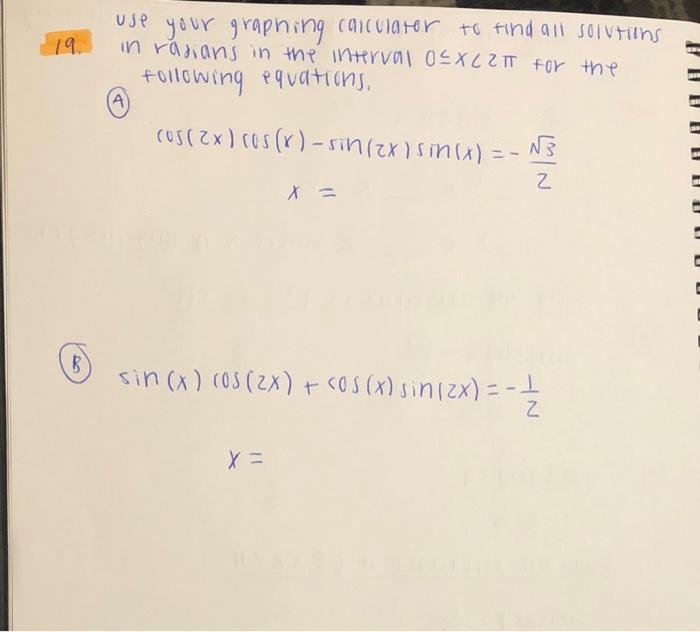 19. use your graphing calculator to find all solutions
in radians in the interval 0≤x<2π for the
following equations.
A
cos(2x)cos(x)-sin(2x)sin(x) = - √3/2
x =
B
sin(x) cos(2x) + cos(x) sin(2x) = - 1/2
x =